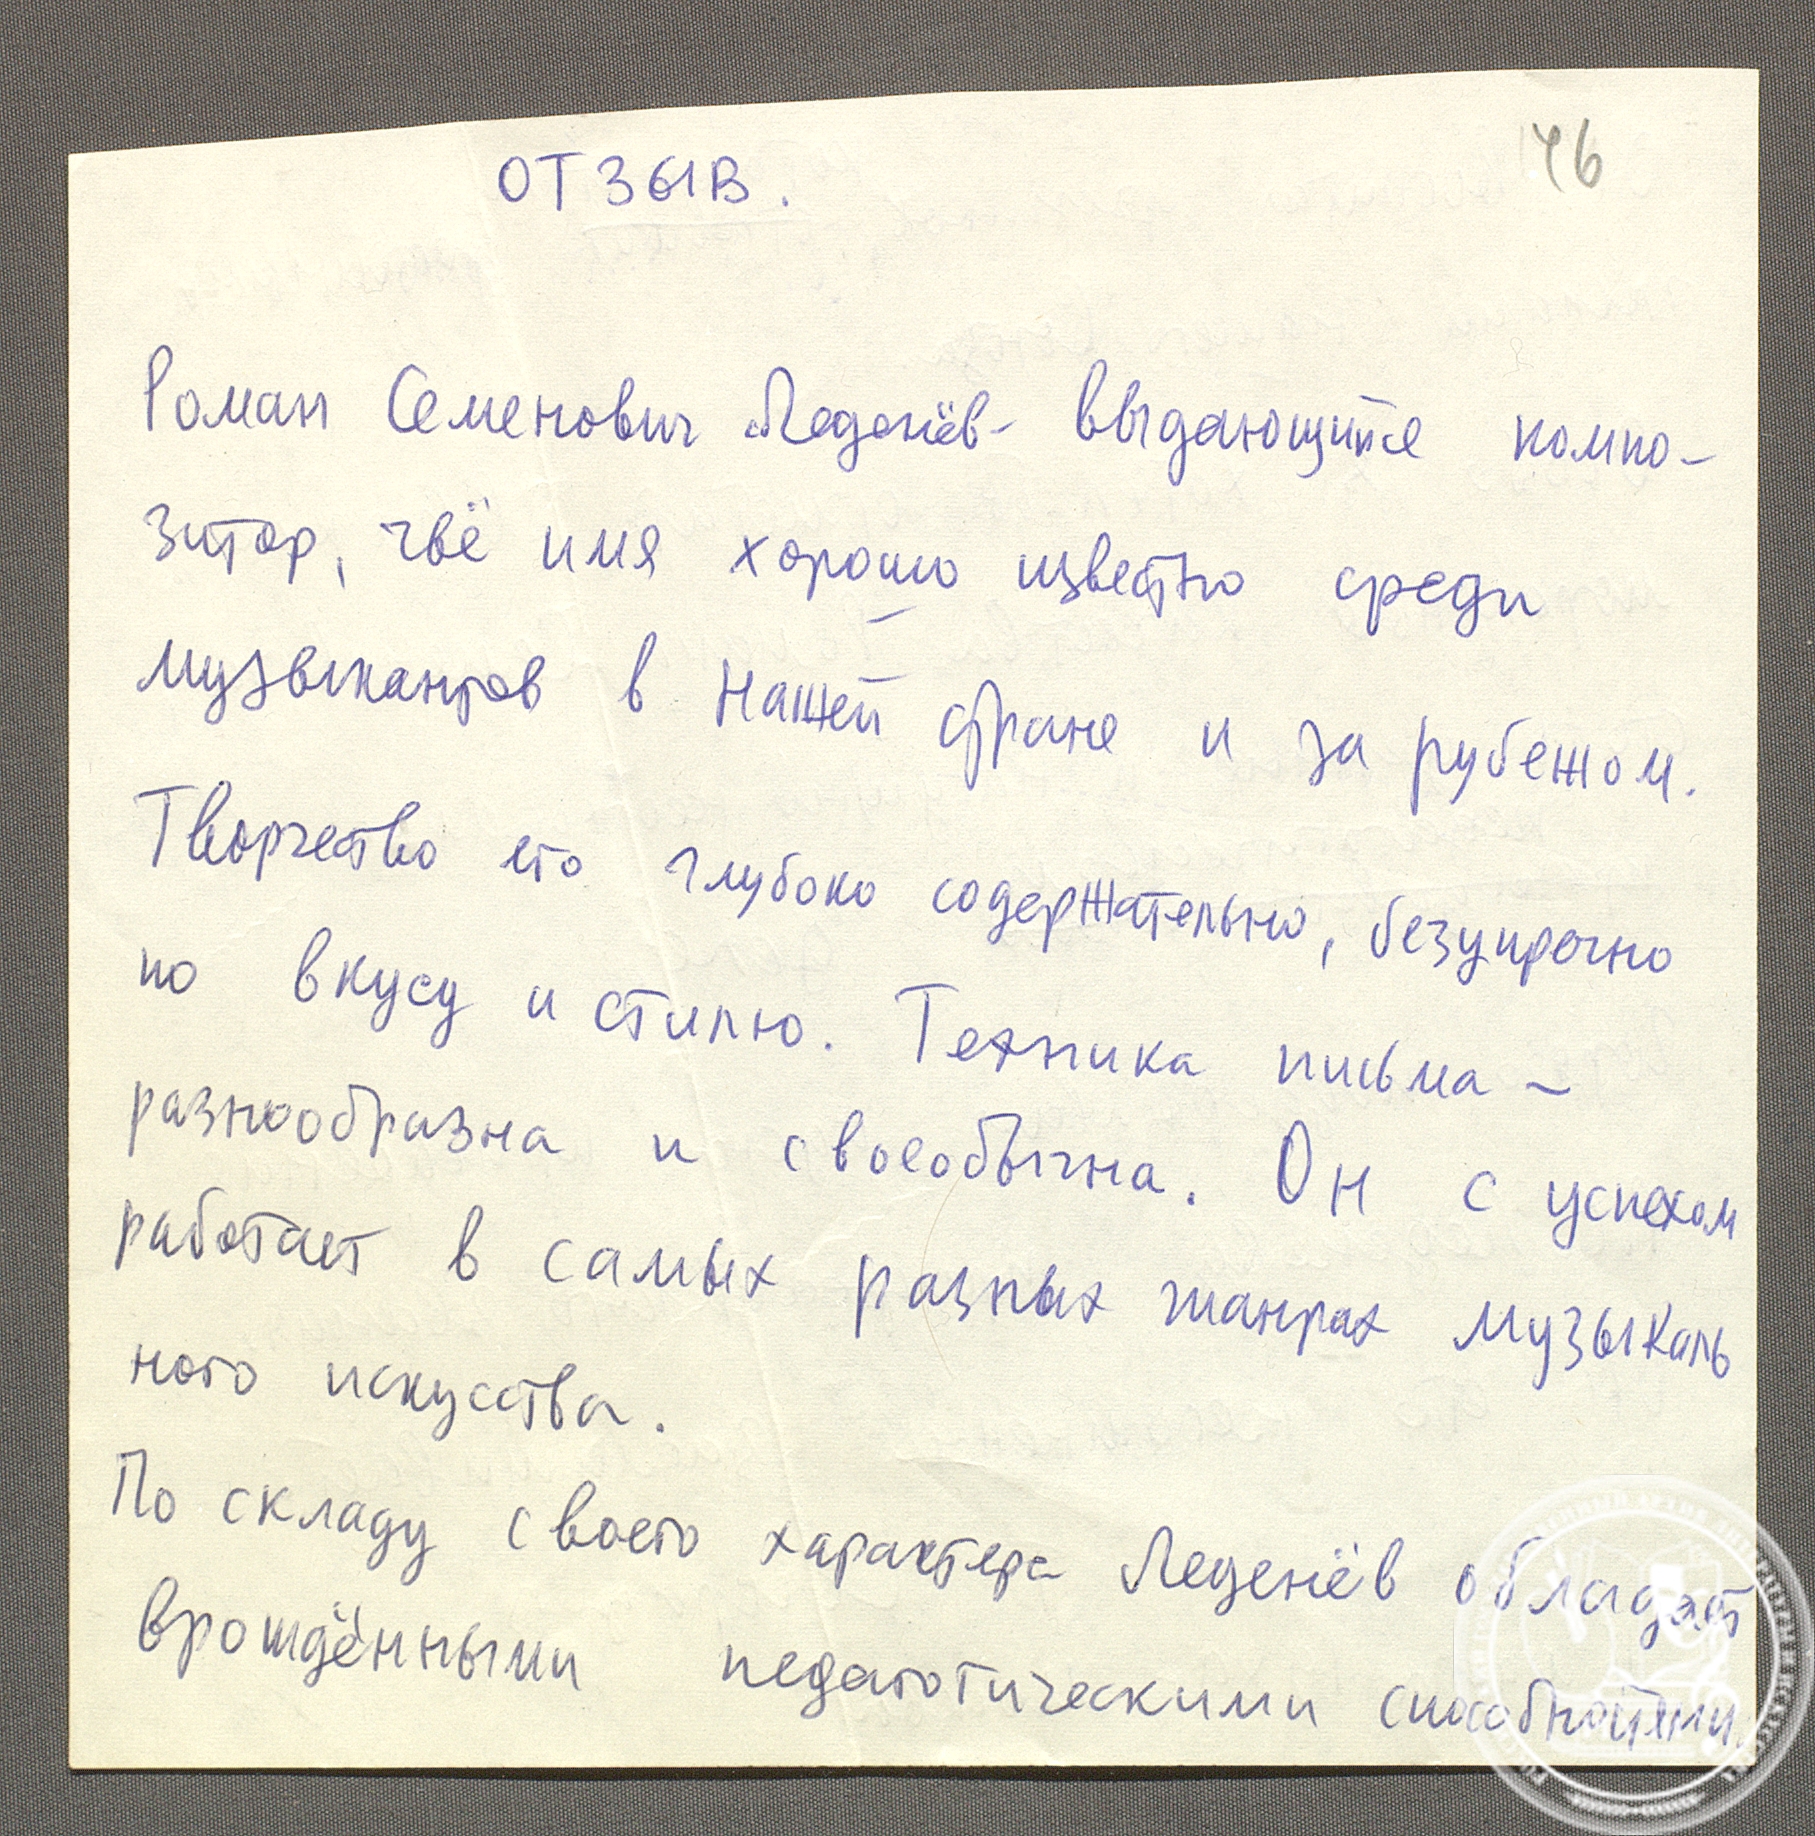 46
ОТЗЫВ.
Роман Семенович Леденёв - выдающийся компо-
зитор, чьё имя хорошо известно среди
музыкантов в нашей стране и за рубежом.
Творчество его глубоко содержательно, безупречно
по вкусу и стилю. Техника письма -
разнообразна и своеобычна. Он с успехом
работает в самых разных жанрах музыкаль
ного искусства.
По складу своего характера Леденёв обладает
врождёнными педагогическими способностями.